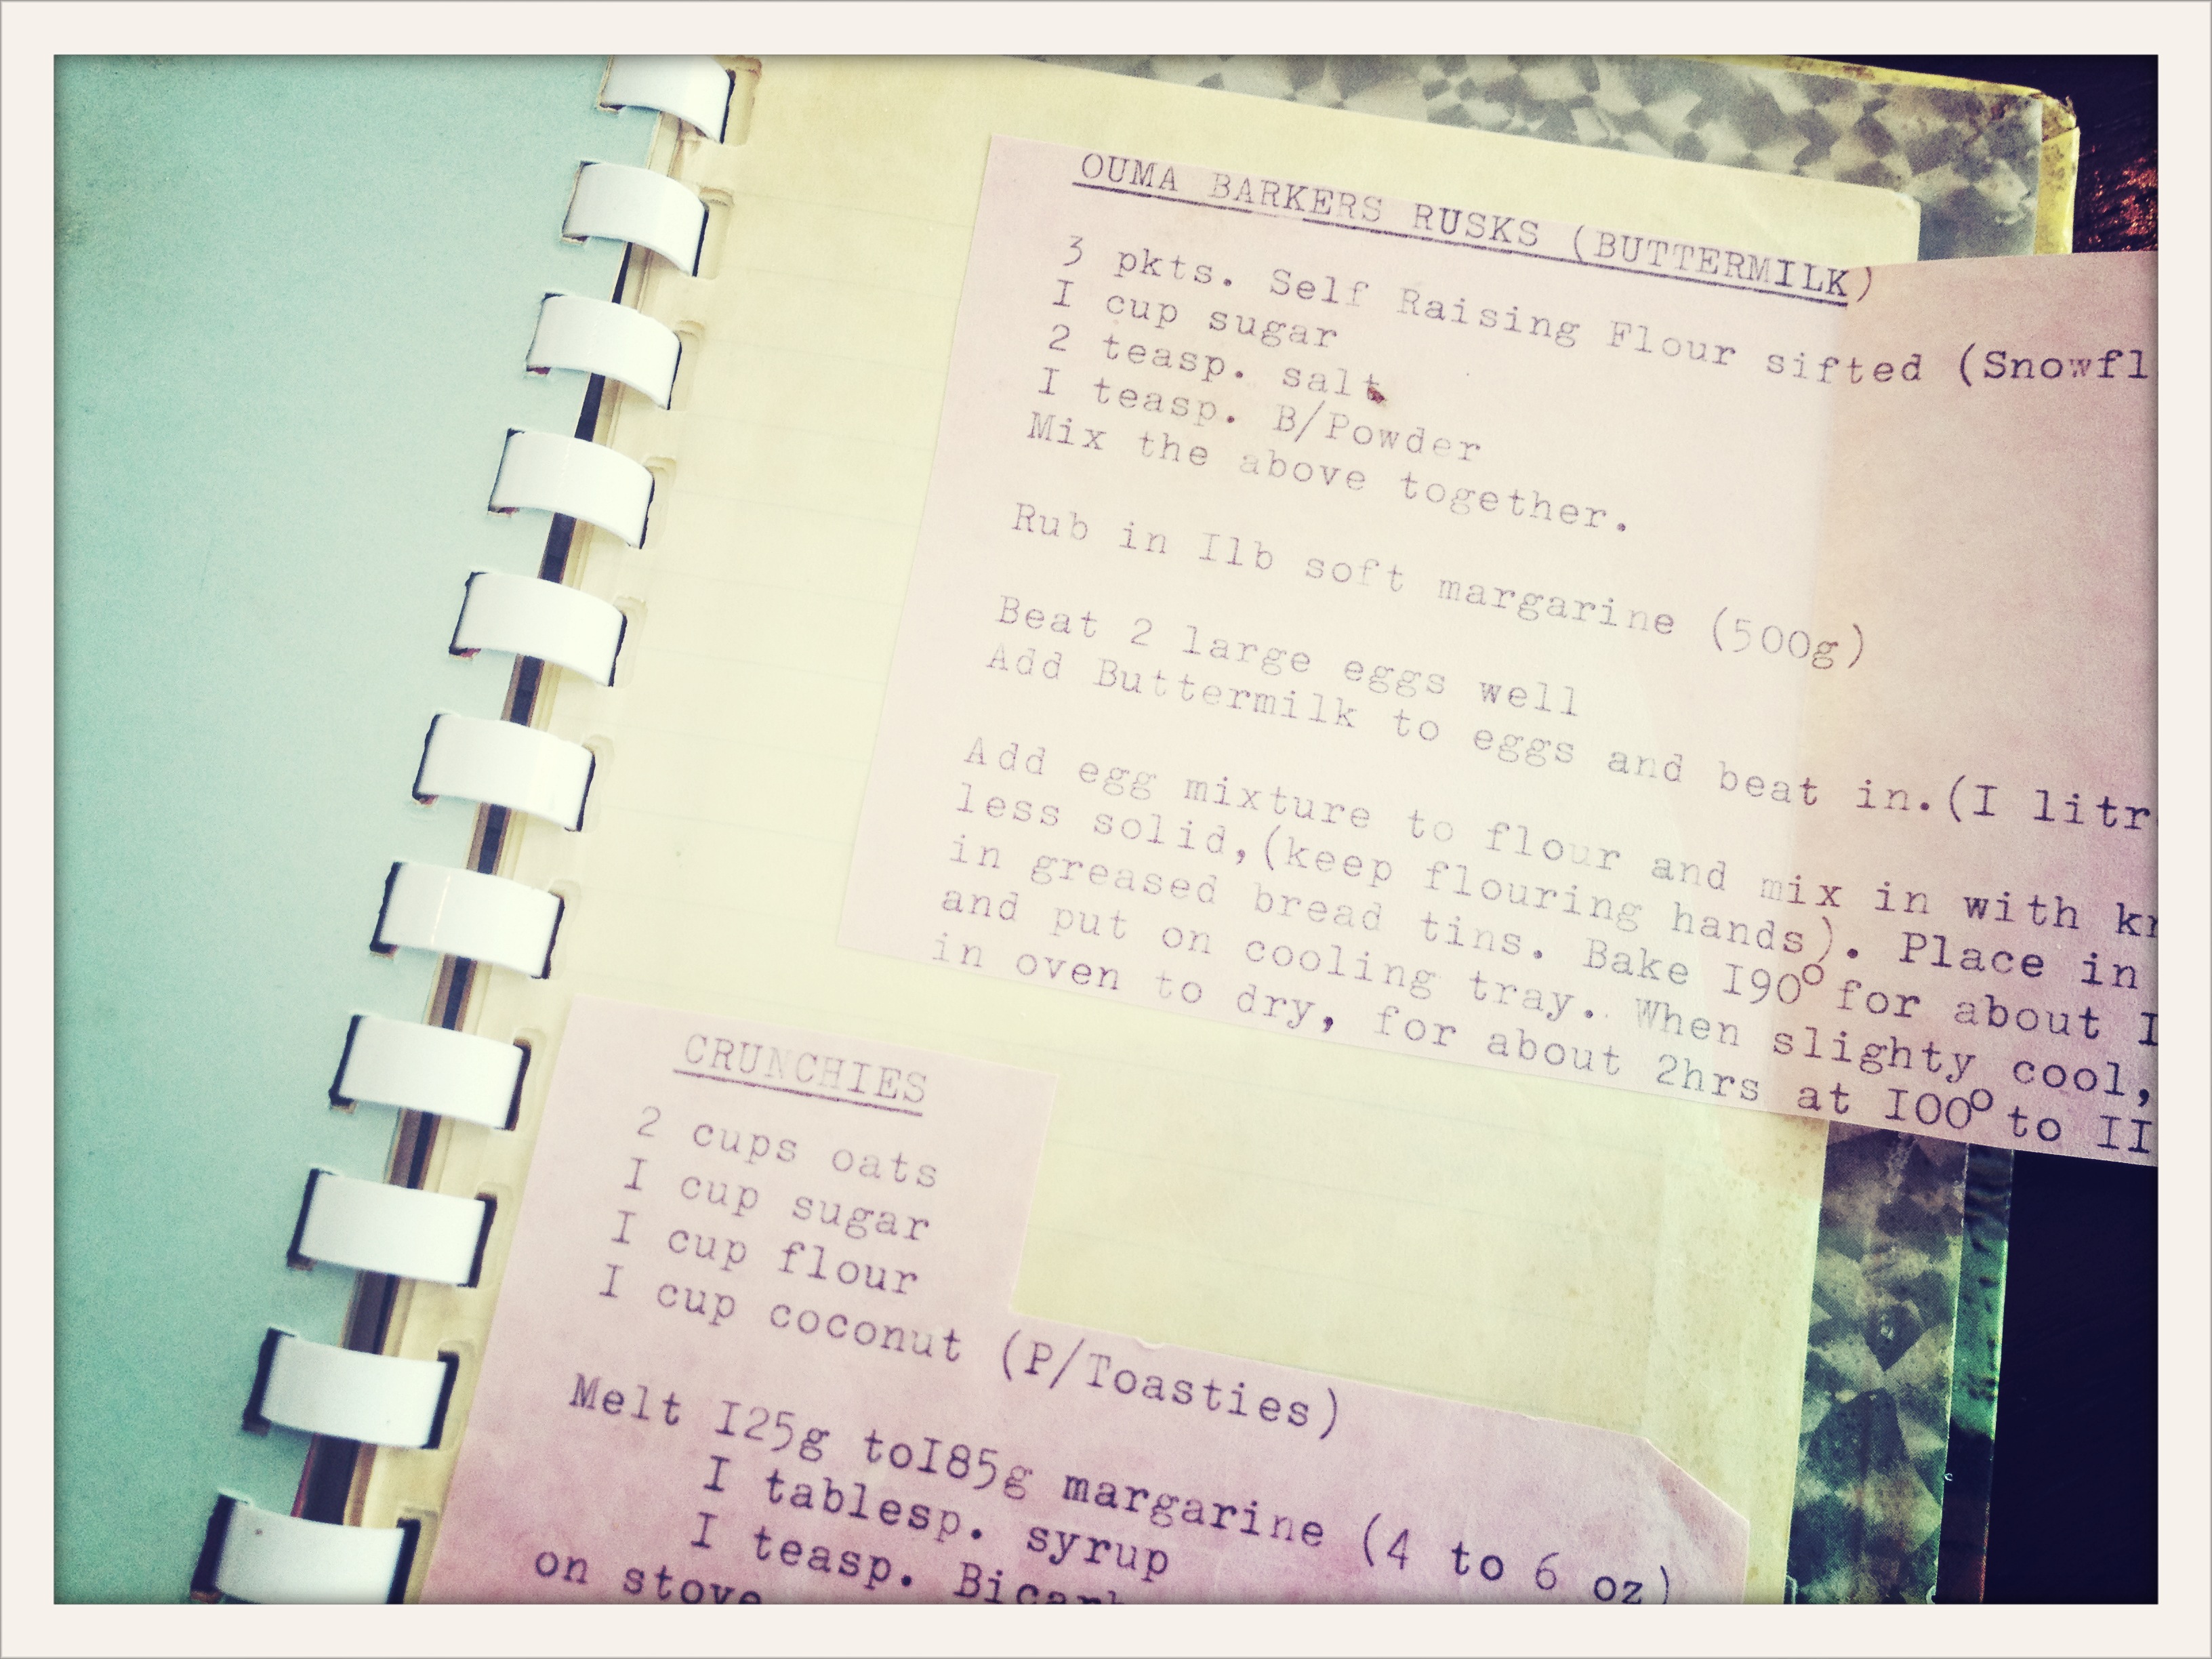 OUMA BARKERS RUSKS (BUTTERMILK)
3 pkts. Self Raising Flour sifted (Snowfl
I cup sugar
2 teasp. salt
I teasp. B/Powder
Mix the above together.
Rub in Ilb soft margarine (500g)
Beat 2 large eggs well
Add Buttermilk to eggs and beat in.(I litr
Add egg mixture to flour and mix in with kn
less solid,(keep flouring hands). Place in
in greased bread tins. Bake I90° for about I
and put on cooling tray. When slighty cool,
in oven to dry, for about 2hrs at I00° to II
CRUNCHIES
2 cups oats
I cup sugar
I cup flour
I cup coconut (P/Toasties)
Melt I25g toI85g margarine (4 to 6 oz)
I tablesp. syrup
I teasp. Bicarb
on stove